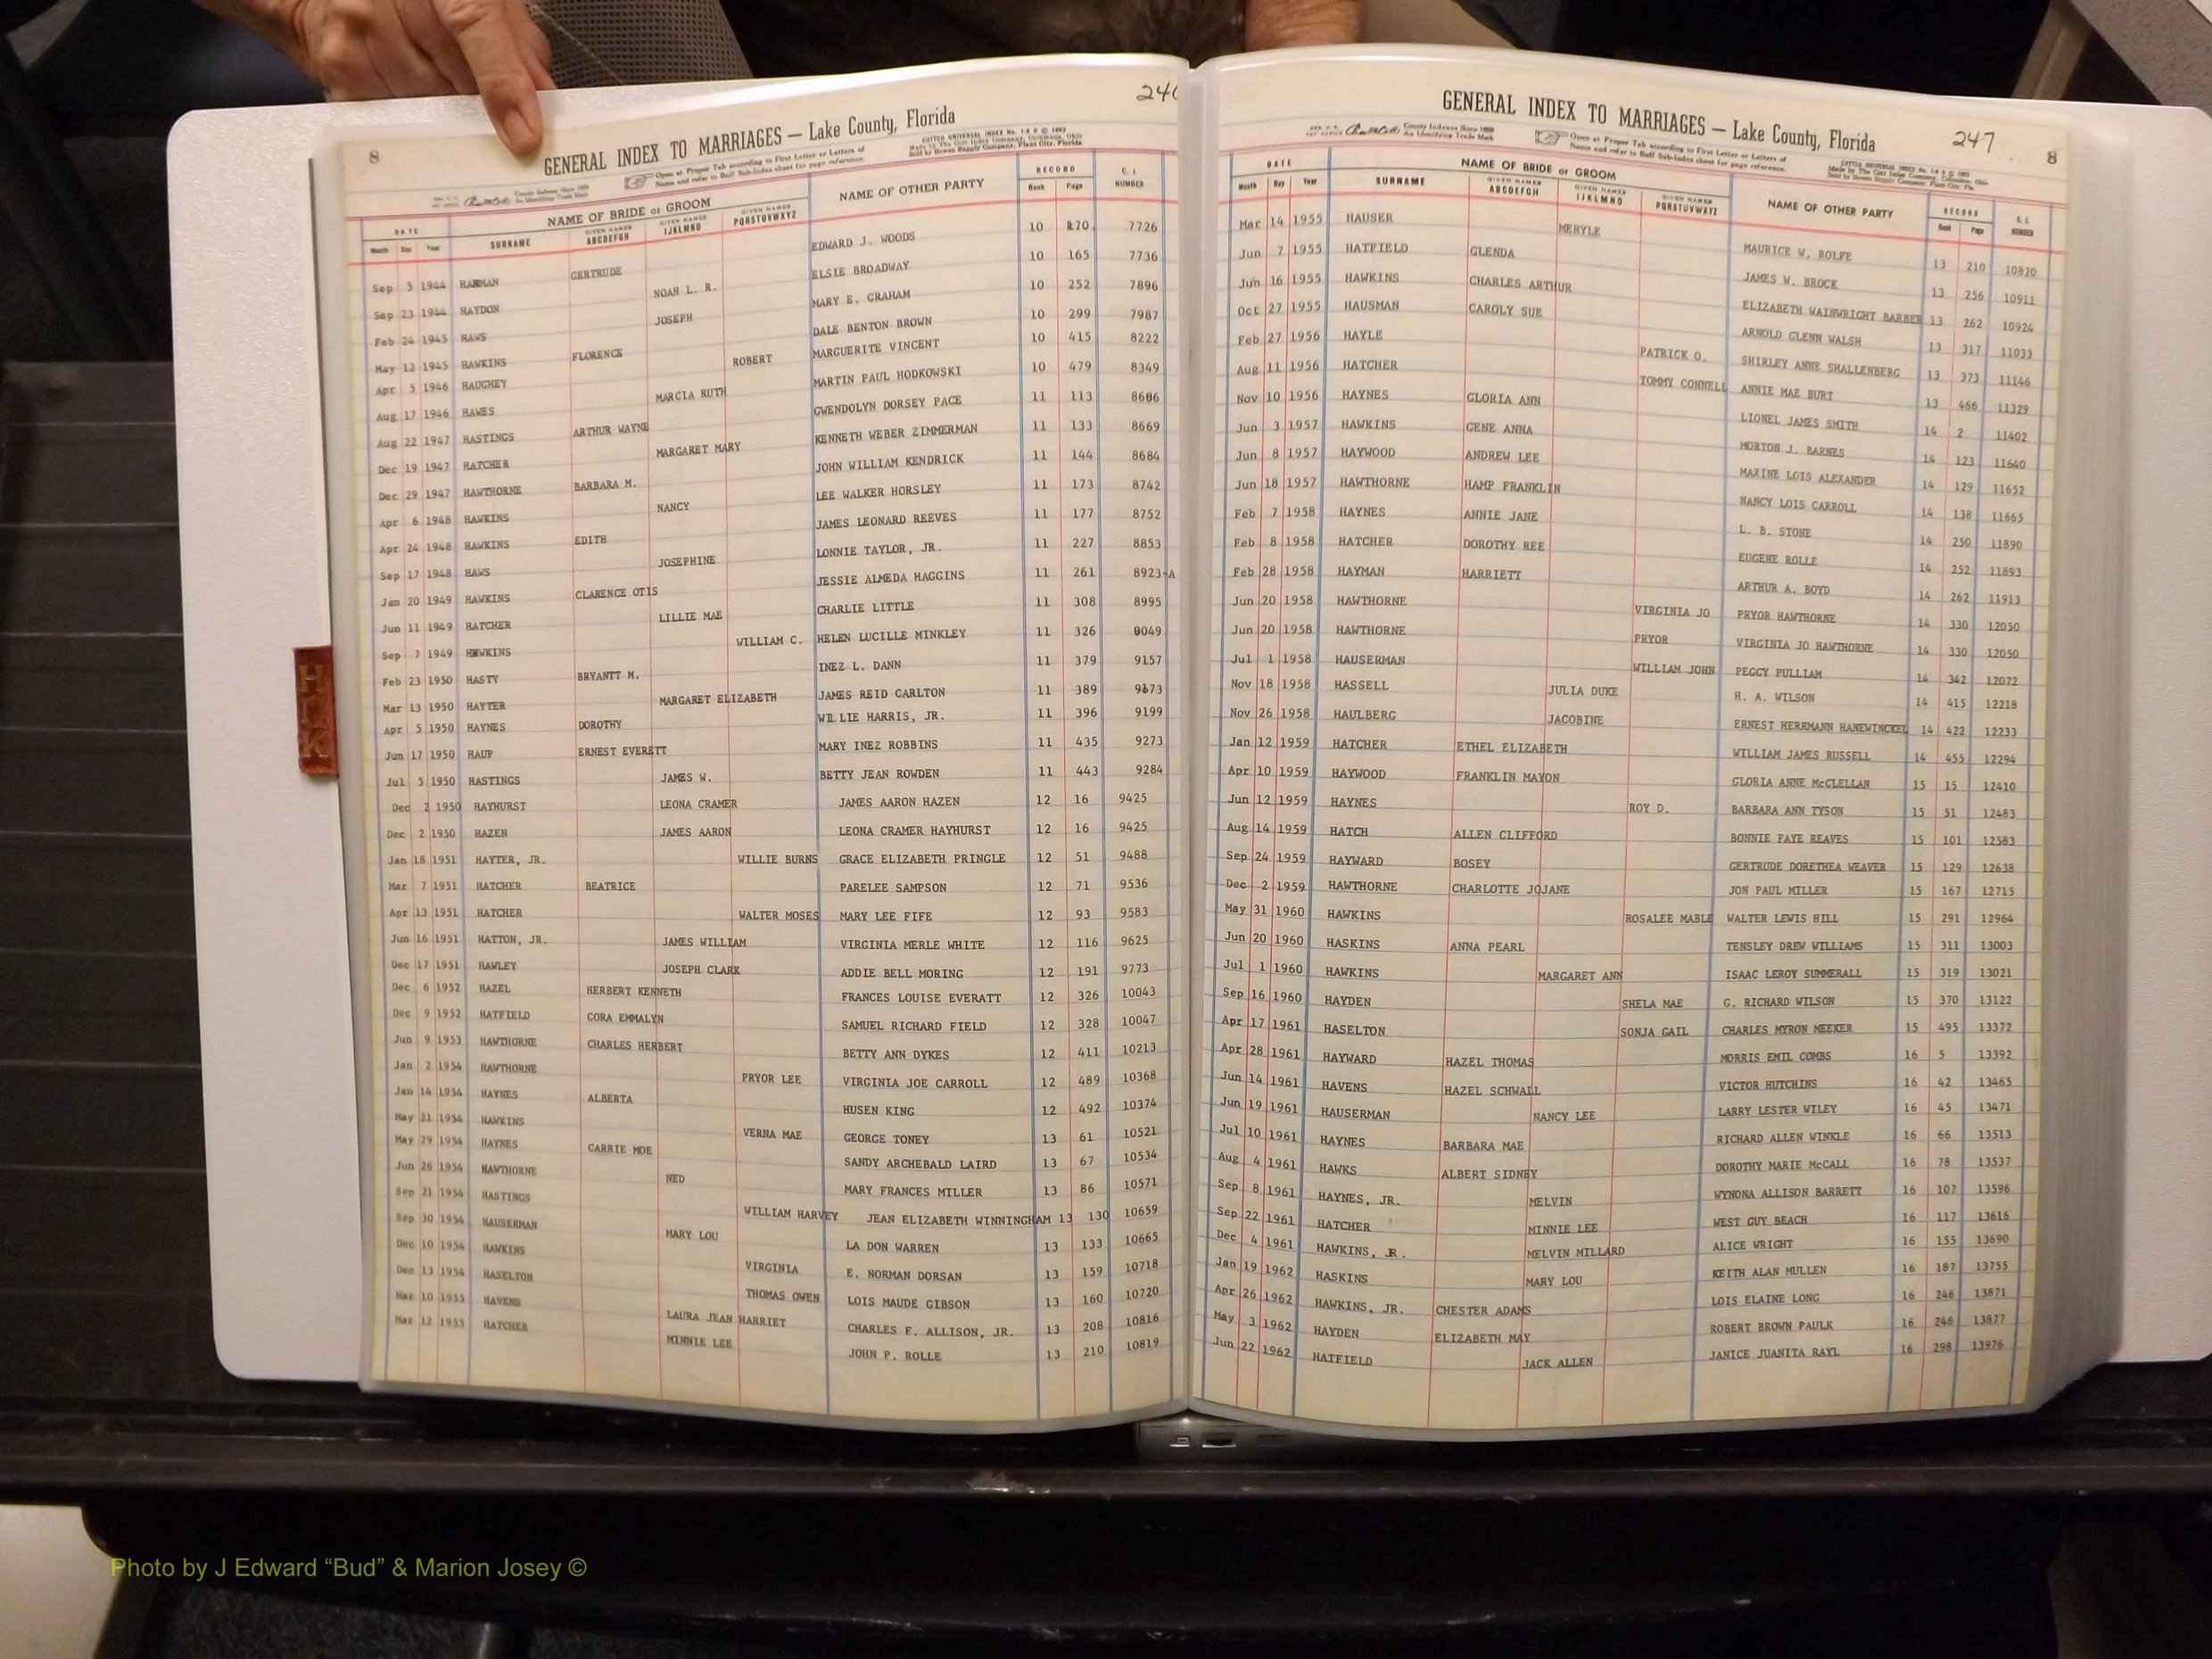 8
246
GENERAL INDEX TO MARRIAGES — Lake County, Florida
County Indexes Since 1888
An Identifying Trade Mark
Open at Proper Tab according to First Letter or Letters of
Name and refer to Buff Sub-Index sheet for page reference.
COTTCO UNIVERSAL INDEX No.
Made by The Cott Index Company, Columbus, Ohio
Sold by Bowen Supply Company, Plant City, Florida
DATE NAME OF BRIDE or GROOM NAME OF OTHER PARTY RECORD C. I. NUMBER
Month Day Year SURNAME GIVEN NAMES ABCDEFGH GIVEN NAMES IJKLMNO GIVEN NAMES PQRSTUVWXYZ Book Page
Sep 3 1944 HARMAN GERTRUDE EDWARD J. WOODS 10 170 7726
Sep 23 1944 HAYDON NOAH L. R. ELSIE BROADWAY 10 165 7736
Feb 24 1945 HAWS JOSEPH MARY E. GRAHAM 10 252 7896
May 12 1945 HAWKINS FLORENCE DALE BENTON BROWN 10 299 7987
Apr 5 1946 HAUGHEY ROBERT MARGUERITE VINCENT 10 415 8222
Aug 17 1946 HAWES MARCIA RUTH MARTIN PAUL HODKOWSKI 10 479 8349
Aug 22 1947 HASTINGS ARTHUR WAYNE GWENDOLYN DORSEY PACE 11 113 8606
Dec 19 1947 HATCHER MARGARET MARY KENNETH WEBER ZIMMERMAN 11 133 8669
Dec 29 1947 HAWTHORNE BARBARA M. JOHN WILLIAM KENDRICK 11 144 8684
Apr 6 1948 HAWKINS NANCY LEE WALKER HORSLEY 11 173 8742
Apr 24 1948 HAWKINS EDITH JAMES LEONARD REEVES 11 177 8752
Sep 17 1948 HAWS JOSEPHINE LONNIE TAYLOR, JR. 11 227 8853
Jan 20 1949 HAWKINS CLARENCE OTIS JESSIE ALMEDA HAGGINS 11 261 8923-A
Jun 11 1949 HATCHER LILLIE MAE CHARLIE LITTLE 11 308 8995
Sep 7 1949 HAWKINS WILLIAM C. HELEN LUCILLE MINKLEY 11 326 9049
Feb 23 1950 HASTY BRYANTT M. INEZ L. DANN 11 379 9157
Mar 13 1950 HAYTER MARGARET ELIZABETH JAMES REID CARLTON 11 389 9173
Apr 5 1950 HAYNES DOROTHY WILLIE HARRIS, JR. 11 396 9199
Jun 17 1950 HAUP ERNEST EVERETT MARY INEZ ROBBINS 11 435 9273
Jul 5 1950 HASTINGS JAMES W. BETTY JEAN ROWDEN 11 443 9284
Dec 2 1950 HAYHURST LEONA CRAMER JAMES AARON HAZEN 12 16 9425
Dec 2 1950 HAZEN JAMES AARON LEONA CRAMER HAYHURST 12 16 9425
Jan 18 1951 HAYTER, JR. WILLIE BURNS GRACE ELIZABETH PRINGLE 12 51 9488
Mar 7 1951 HATCHER BEATRICE PARELEE SAMPSON 12 71 9536
Apr 13 1951 HATCHER WALTER MOSES MARY LEE FIFE 12 93 9583
Jun 16 1951 HATTON, JR. JAMES WILLIAM VIRGINIA MERLE WHITE 12 116 9625
Dec 17 1951 HAWLEY JOSEPH CLARK ADDIE BELL MORING 12 191 9773
Dec 6 1952 HAZEL HERBERT KENNETH FRANCES LOUISE EVERATT 12 326 10043
Dec 9 1952 HATFIELD CORA EMMALYN SAMUEL RICHARD FIELD 12 328 10047
Jun 9 1953 HAWTHORNE CHARLES HERBERT BETTY ANN DYKES 12 411 10213
Jan 2 1954 HAWTHORNE PRYOR LEE VIRGINIA JOE CARROLL 12 489 10368
Jan 14 1954 HAYNES ALBERTA HUSEN KING 12 492 10374
May 21 1954 HAWKINS VERNA MAE GEORGE TONEY 13 61 10521
May 29 1954 HAYNES CARRIE MOE SANDY ARCHEBALD LAIRD 13 67 10534
Jun 26 1954 HAWTHORNE NED MARY FRANCES MILLER 13 86 10571
Sep 21 1954 HASTINGS WILLIAM HARVEY JEAN ELIZABETH WINNINGHAM 13 130 10659
Sep 30 1954 HAUSERMAN MARY LOU LA DON WARREN 13 133 10665
Dec 10 1954 HAWKINS VIRGINIA E. NORMAN DORSAN 13 159 10718
Dec 13 1954 HASELTON THOMAS OWEN LOIS MAUDE GIBSON 13 160 10720
Mar 10 1955 HAVENS LAURA JEAN HARRIET CHARLES F. ALLISON, JR. 13 208 10816
Mar 12 1955 HATCHER MINNIE LEE JOHN P. ROLLE 13 210 10819
HIK
GENERAL INDEX TO MARRIAGES — Lake County, Florida
247
8
County Indexes Since 1888
An Identifying Trade Mark
Open at Proper Tab according to First Letter or Letters of
Name and refer to Buff Sub-Index sheet for page reference.
COTTCO UNIVERSAL INDEX No.
Made by The Cott Index Company, Columbus, Ohio
Sold by Bowen Supply Company, Plant City, Fla.
DATE NAME OF BRIDE or GROOM NAME OF OTHER PARTY RECORD C. I. NUMBER
Month Day Year SURNAME GIVEN NAMES ABCDEFGH GIVEN NAMES IJKLMNO GIVEN NAMES PQRSTUVWXYZ Book Page
Mar 14 1955 HAUSER MERYLE MAURICE W. ROLFE 13 210 10820
Jun 7 1955 HATFIELD GLENDA JAMES W. BROCK 13 256 10911
Jun 16 1955 HAWKINS CHARLES ARTHUR ELIZABETH WAINWRIGHT BARBER 13 262 10924
Oct 27 1955 HAUSMAN CAROLY SUE ARNOLD GLENN WALSH 13 317 11033
Feb 27 1956 HAYLE PATRICK O. SHIRLEY ANNE SHALLENBERG 13 373 11146
Aug 11 1956 HATCHER TOMMY CONNELL ANNIE MAE BURT 13 466 11329
Nov 10 1956 HAYNES GLORIA ANN LIONEL JAMES SMITH 14 2 11402
Jun 3 1957 HAWKINS GENE ANNA MORTON J. BARNES 14 123 11640
Jun 8 1957 HAYWOOD ANDREW LEE MAXINE LOIS ALEXANDER 14 129 11652
Jun 18 1957 HAWTHORNE HAMP FRANKLIN NANCY LOIS CARROLL 14 138 11665
Feb 7 1958 HAYNES ANNIE JANE L. B. STONE 14 250 11890
Feb 8 1958 HATCHER DOROTHY REE EUGENE ROLLE 14 252 11893
Feb 28 1958 HAYMAN HARRIETT ARTHUR A. BOYD 14 262 11913
Jun 20 1958 HAWTHORNE VIRGINIA JO PRYOR HAWTHORNE 14 330 12050
Jun 20 1958 HAWTHORNE PRYOR VIRGINIA JO HAWTHORNE 14 330 12050
Jul 1 1958 HAUSERMAN WILLIAM JOHN PEGGY PULLIAM 14 342 12072
Nov 18 1958 HASSELL JULIA DUKE H. A. WILSON 14 415 12218
Nov 26 1958 HAULBERG JACOBINE ERNEST HERRMANN HANEWINCKEL 14 422 12233
Jan 12 1959 HATCHER ETHEL ELIZABETH WILLIAM JAMES RUSSELL 14 455 12294
Apr 10 1959 HAYWOOD FRANKLIN MAYON GLORIA ANNE McCLELLAN 15 15 12410
Jun 12 1959 HAYNES ROY D. BARBARA ANN TYSON 15 51 12483
Aug 14 1959 HATCH ALLEN CLIFFORD BONNIE FAYE REAVES 15 101 12583
Sep 24 1959 HAYWARD BOSEY GERTRUDE DORETHEA WEAVER 15 129 12638
Dec 2 1959 HAWTHORNE CHARLOTTE JOJANE JON PAUL MILLER 15 167 12715
May 31 1960 HAWKINS ROSALEE MABLE WALTER LEWIS HILL 15 291 12964
Jun 20 1960 HASKINS ANNA PEARL TENSLEY DREW WILLIAMS 15 311 13003
Jul 1 1960 HAWKINS MARGARET ANN ISAAC LEROY SUMMERALL 15 319 13021
Sep 16 1960 HAYDEN SHELA MAE G. RICHARD WILSON 15 370 13122
Apr 17 1961 HASELTON SONJA GAIL CHARLES MYRON MEEKER 15 495 13372
Apr 28 1961 HAYWARD HAZEL THOMAS MORRIS EMIL COMBS 16 5 13392
Jun 14 1961 HAVENS HAZEL SCHWALL VICTOR HUTCHINS 16 42 13465
Jun 19 1961 HAUSERMAN NANCY LEE LARRY LESTER WILEY 16 45 13471
Jul 10 1961 HAYNES BARBARA MAE RICHARD ALLEN WINKLE 16 66 13513
Aug 4 1961 HAWKS ALBERT SIDNEY DOROTHY MARIE McCALL 16 78 13537
Sep 8 1961 HAYNES, JR. MELVIN WYNONA ALLISON BARRETT 16 107 13596
Sep 22 1961 HATCHER MINNIE LEE WEST GUY BEACH 16 117 13616
Dec 4 1961 HAWKINS, JR. MELVIN MILLARD ALICE WRIGHT 16 155 13690
Jan 19 1962 HASKINS MARY LOU KEITH ALAN MULLEN 16 187 13755
Apr 26 1962 HAWKINS, JR. CHESTER ADAMS LOIS ELAINE LONG 16 246 13871
May 3 1962 HAYDEN ELIZABETH MAY ROBERT BROWN PAULK 16 248 13877
Jun 22 1962 HATFIELD JACK ALLEN JANICE JUANITA RAYL 16 298 13976
Photo by J Edward “Bud” & Marion Josey ©